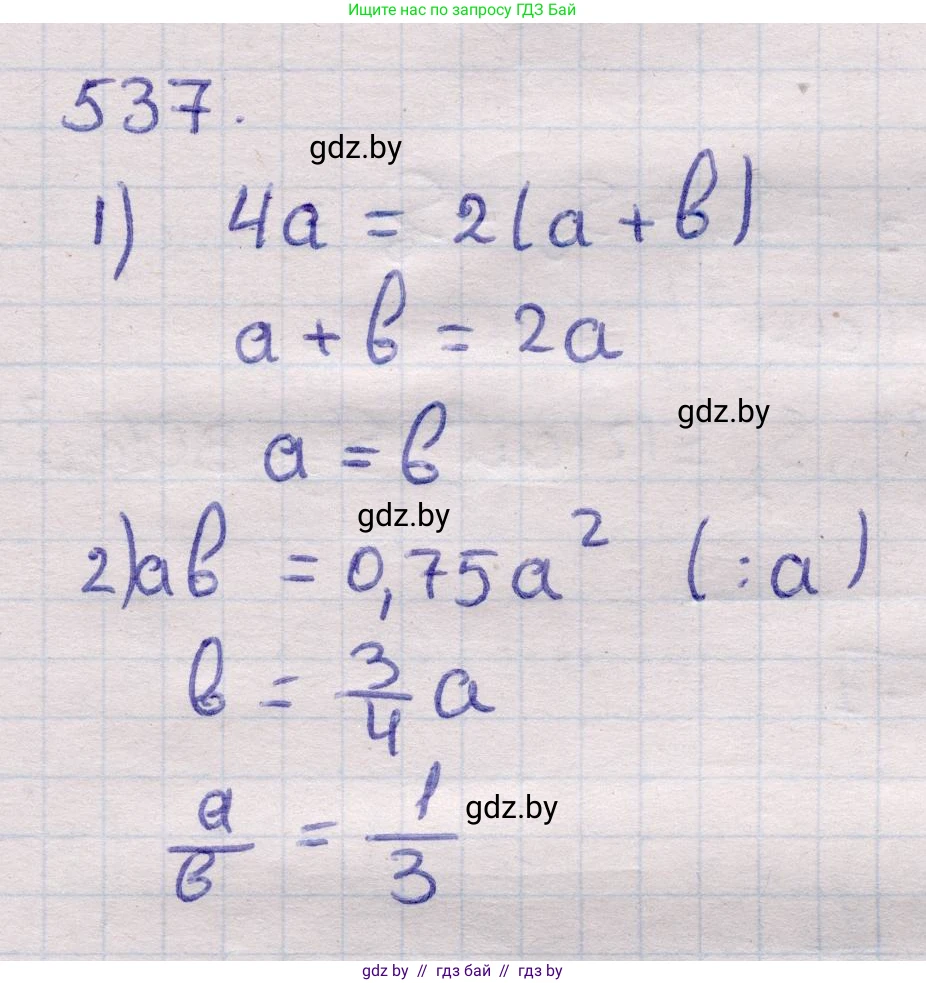 Ищите нас по запросу ГДЗ Бай
537.
gdz.by
1) 4a = 2(a + в)
a + в = 2a
gdz.by
a = в
gdz.by
2) aв = 0,75a² (:a)
в = 3/4 a
a/в = 1/3
gdz.by
gdz by // гдз бай // гдз by